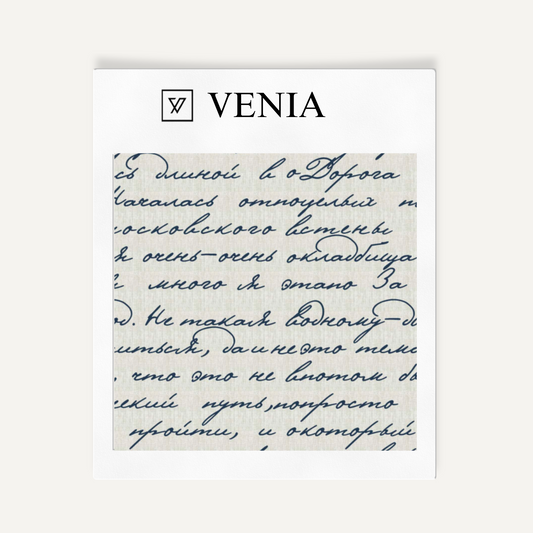 VENIA
сь длиной в о Дорога
Началась отпоцелых т
московского встены
я очень-очень окладбища
й много я этапо За
од. Не такая водному-бы
миться, да и не это тема
, что это не впотом бы
ческий путь, попросто
пройти, и окоторый